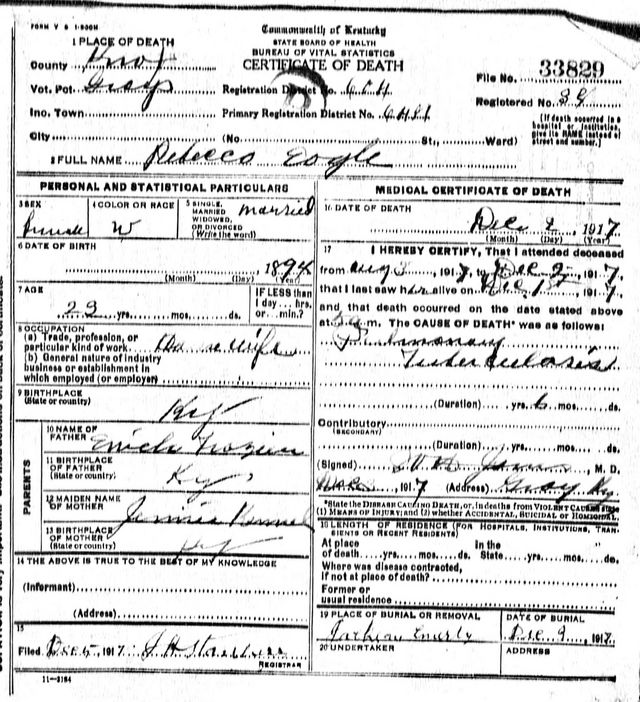 FORM V S 1-500M
Commonwealth of Kentucky
STATE BOARD OF HEALTH
BUREAU OF VITAL STATISTICS
CERTIFICATE OF DEATH
1 PLACE OF DEATH
County Knox
Vot. Pct. Grays
Ino. Town
City
Registration District No.
Primary Registration District No.
(No. St., Ward)
File No. 33829
Registered No. 39
(If death occurred in a hospital or institution, give its NAME instead of street and number.)
2 FULL NAME Rebecca Eagle
PERSONAL AND STATISTICAL PARTICULARS
3 SEX female
4 COLOR OR RACE W
5 SINGLE, MARRIED WIDOWED, OR DIVORCED (Write the word) married
6 DATE OF BIRTH
1894
(Month) (Day) (Year)
7 AGE
23 yrs. mos. ds.
IF LESS than 1 day hrs. or min.?
8 OCCUPATION
(a) Trade, profession, or particular kind of work House wife
(b) General nature of industry business or establishment in which employed (or employer)
9 BIRTHPLACE
(State or country) Ky
PARENTS
10 NAME OF FATHER Frazier
11 BIRTHPLACE OF FATHER
(State or country) Ky
12 MAIDEN NAME OF MOTHER Jennie
13 BIRTHPLACE OF MOTHER
(State or country) Ky
14 THE ABOVE IS TRUE TO THE BEST OF MY KNOWLEDGE
(Informant)
(Address)
15
Filed Dec 5, 1917
REGISTRAR
11-3184
MEDICAL CERTIFICATE OF DEATH
16 DATE OF DEATH
Dec 2, 1917
(Month) (Day) (Year)
17 I HEREBY CERTIFY, That I attended deceased
from Aug 3, 1917, to Dec 2, 1917,
that I last saw her alive on Dec 1st, 1917,
and that death occurred on the date stated above
at 5 a. m. The CAUSE OF DEATH* was as follows:
Pulmonary
Tuberculosis
(Duration) yrs. 6 mos. ds.
Contributory
(SECONDARY)
(Duration) yrs. mos. ds.
(Signed) M. D.
1917 (Address) Gray Ky
*State the DISEASE CAUSING DEATH, or, in deaths from VIOLENT CAUSES state (1) MEANS OF INJURY; and (2) whether ACCIDENTAL, SUICIDAL or HOMICIDAL.
18 LENGTH OF RESIDENCE (FOR HOSPITALS, INSTITUTIONS, TRANSIENTS OR RECENT RESIDENTS)
At place of death yrs. mos. ds. In the State yrs. mos. ds.
Where was disease contracted,
if not at place of death?
Former or
usual residence
19 PLACE OF BURIAL OR REMOVAL
DATE OF BURIAL
Dec 9, 1917
20 UNDERTAKER
ADDRESS